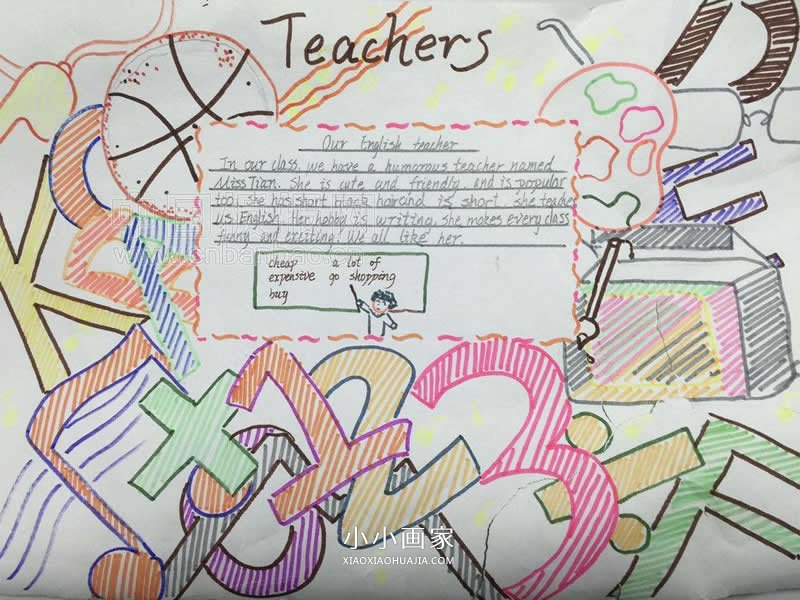 Teachers
Our English teacher
In our class, we have a humorous teacher named
Miss Tian. She is cute and friendly, and is popular
too. She has short black hair and is short. She teaches
us English. Her hobby is writing. She makes every class
funny and exciting! We all like her.
cheap a lot of
expensive go shopping
buy
1 2 3
小小画家
XIAOXIAOHUAJIA.COM